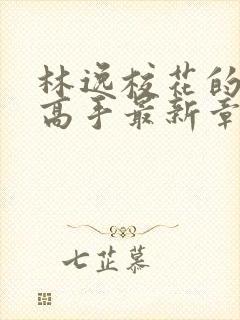 林逸校花的
高手最新章
七芷慕